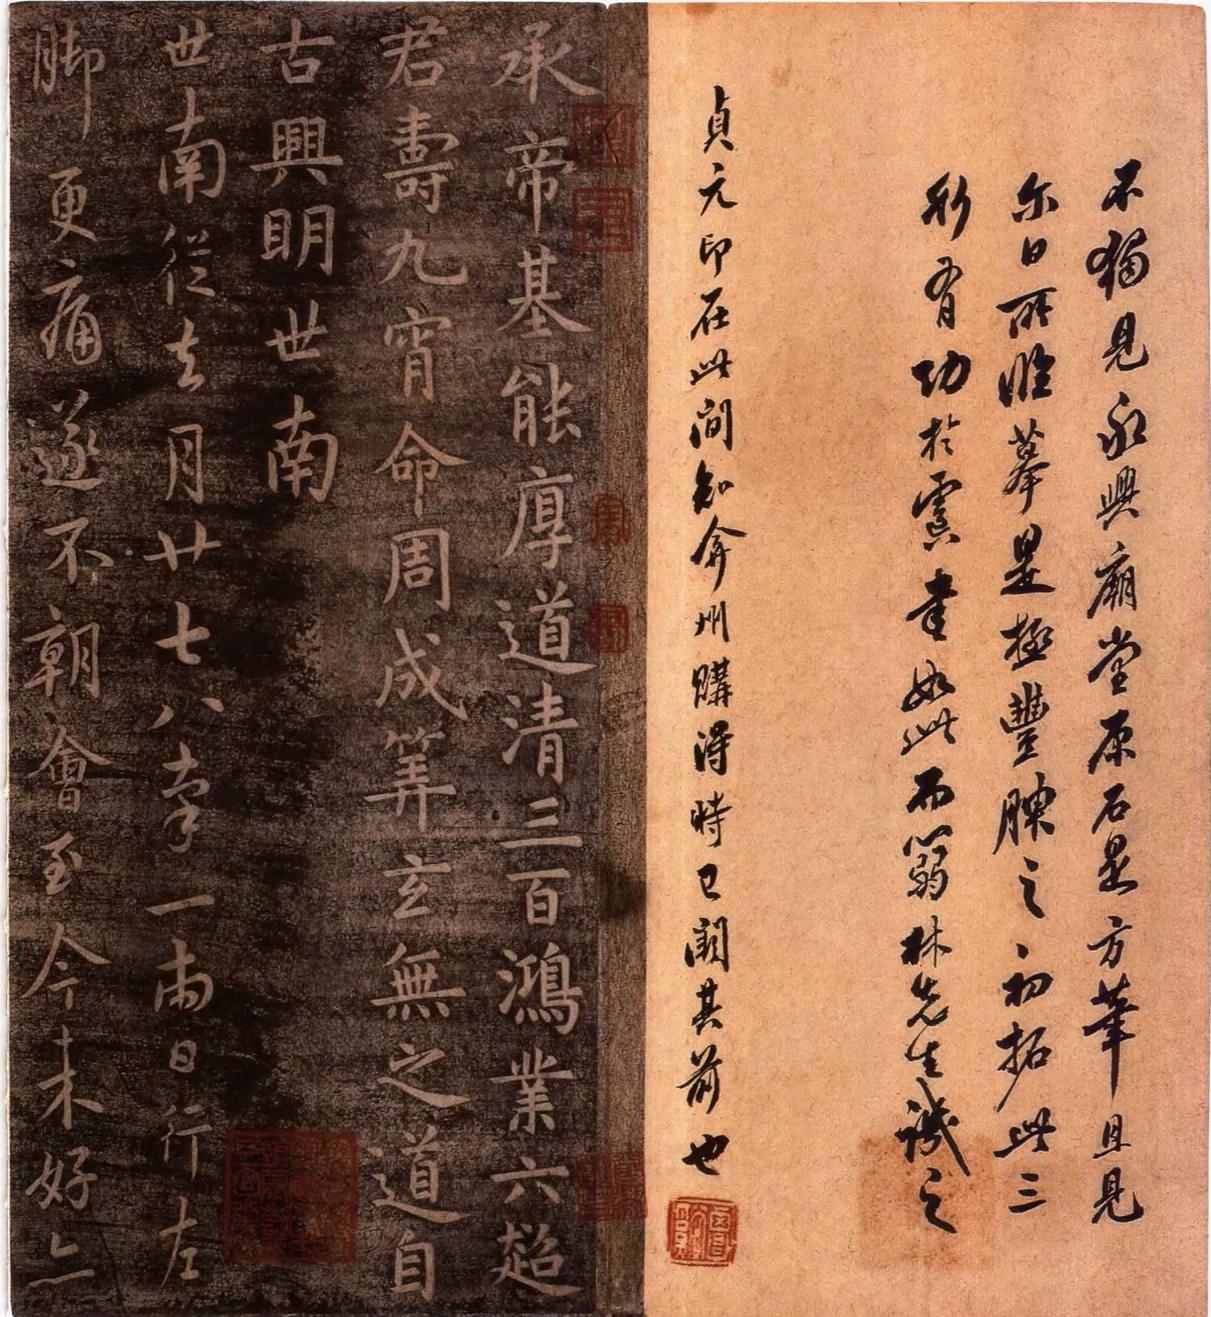 不獨見永興廟堂原石是方筆且見
尔日所臨摹是極豐腴之、初拓此三
有功於虞書如此而蒻林先生識之
貞元印在此間知弇州購得時已闕其前也
承帝基能厚道清三百鴻業六超
君壽九霄命周成筭玄無之道自
古興明世南
世南從去月廿七八率一兩日行左
脚更痛遂不朝會至今未好亦